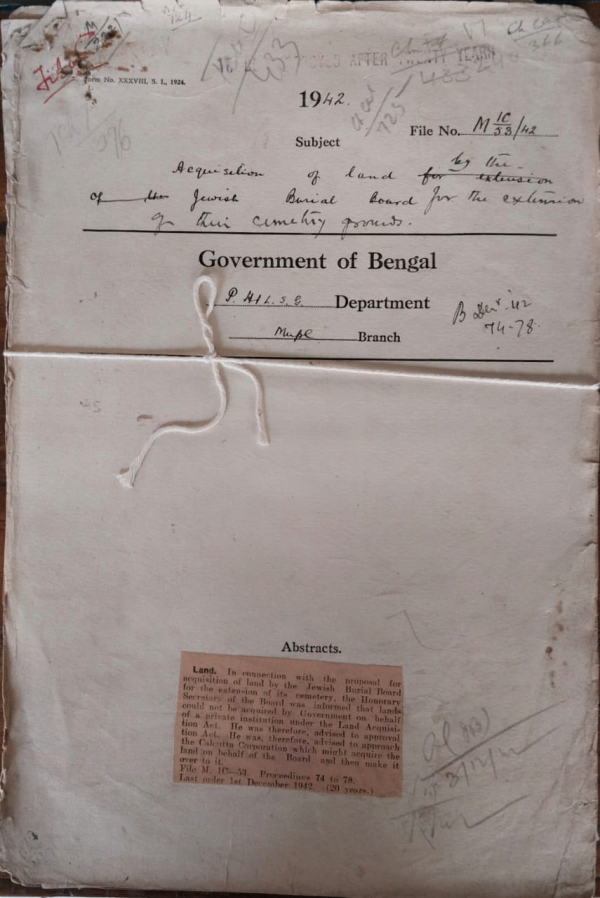 File
Form No. XXXVIII, S. I., 1924.
AFTER TWENTY YEARS
366
1942.
725
Subject
File No. M 1C/53/42
Acquisition of land for extension by the
of the Jewish Burial Board for the extension
of their cemetry grounds.
Government of Bengal
P. H & L. S. G. Department
Branch
B Decr '42
74-78.
Abstracts.
Land. In connection with the proposal for
acquisition of land by the Jewish Burial Board
for the extension of its cemetery, the Honorary
Secretary of the Board was informed that lands
could not be acquired by Government on behalf
of a private institution under the Land Acquisi-
tion Act. He was, therefore, advised to approval
tion Act. He was, therefore, advised to approach
the Calcutta Corporation which might acquire the
land on behalf of the Board and then make it
over to it.
File M. 1C—53. Proceedings 74 to 78.
Last order 1st December 1942. (20 years.)